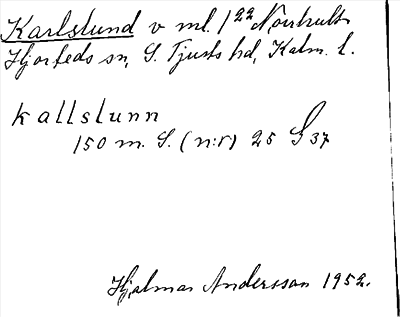 Karlslund v ml. 1²² Norrhult
Hjorteds sn, S. Tjusts hd, Kalm. l.
kallslunn
150 m. S. (n:r) 25 G 37
Hjalmar Andersson 1952.